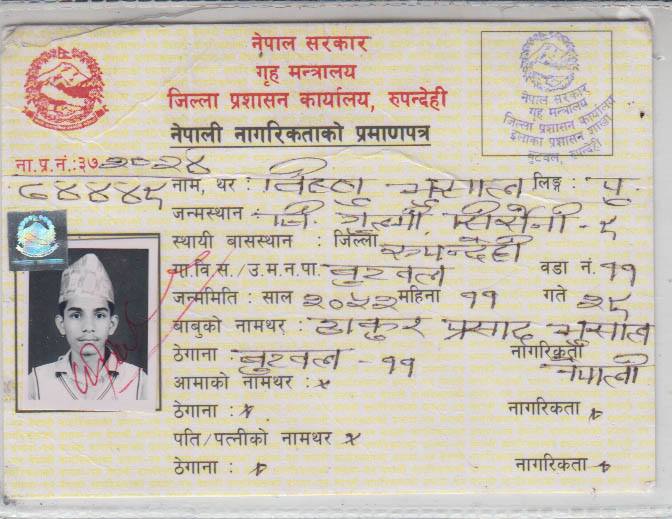 नेपाल सरकार
गृह मन्त्रालय
जिल्ला प्रशासन कार्यालय, रुपन्देही
नेपाली नागरिकताको प्रमाणपत्र
नेपाल सरकार
गृह मन्त्रालय
जिल्ला प्रशासन कार्यालय
इलाका प्रशासन
बुटवल, रुपन्देही
ना.प्र.नं.:३७
नाम, थर : विष्णु भुसाल लिङ्ग : पु.
जन्मस्थान : जि. गुल्मी,
स्थायी बासस्थान : जिल्ला रुपन्देही
गा.वि.स./उ.म.न.पा. बुटवल वडा नं. ११
जन्ममिति : साल २०५२ महिना ११ गते २५
बाबुको नामथर : ठाकुर प्रसाद भुसाल
ठेगाना : बुटवल - ११ नागरिकता नेपाली
आमाको नामथर : x
ठेगाना : x नागरिकता x
पति/पत्नीको नामथर x
ठेगाना : x नागरिकता x